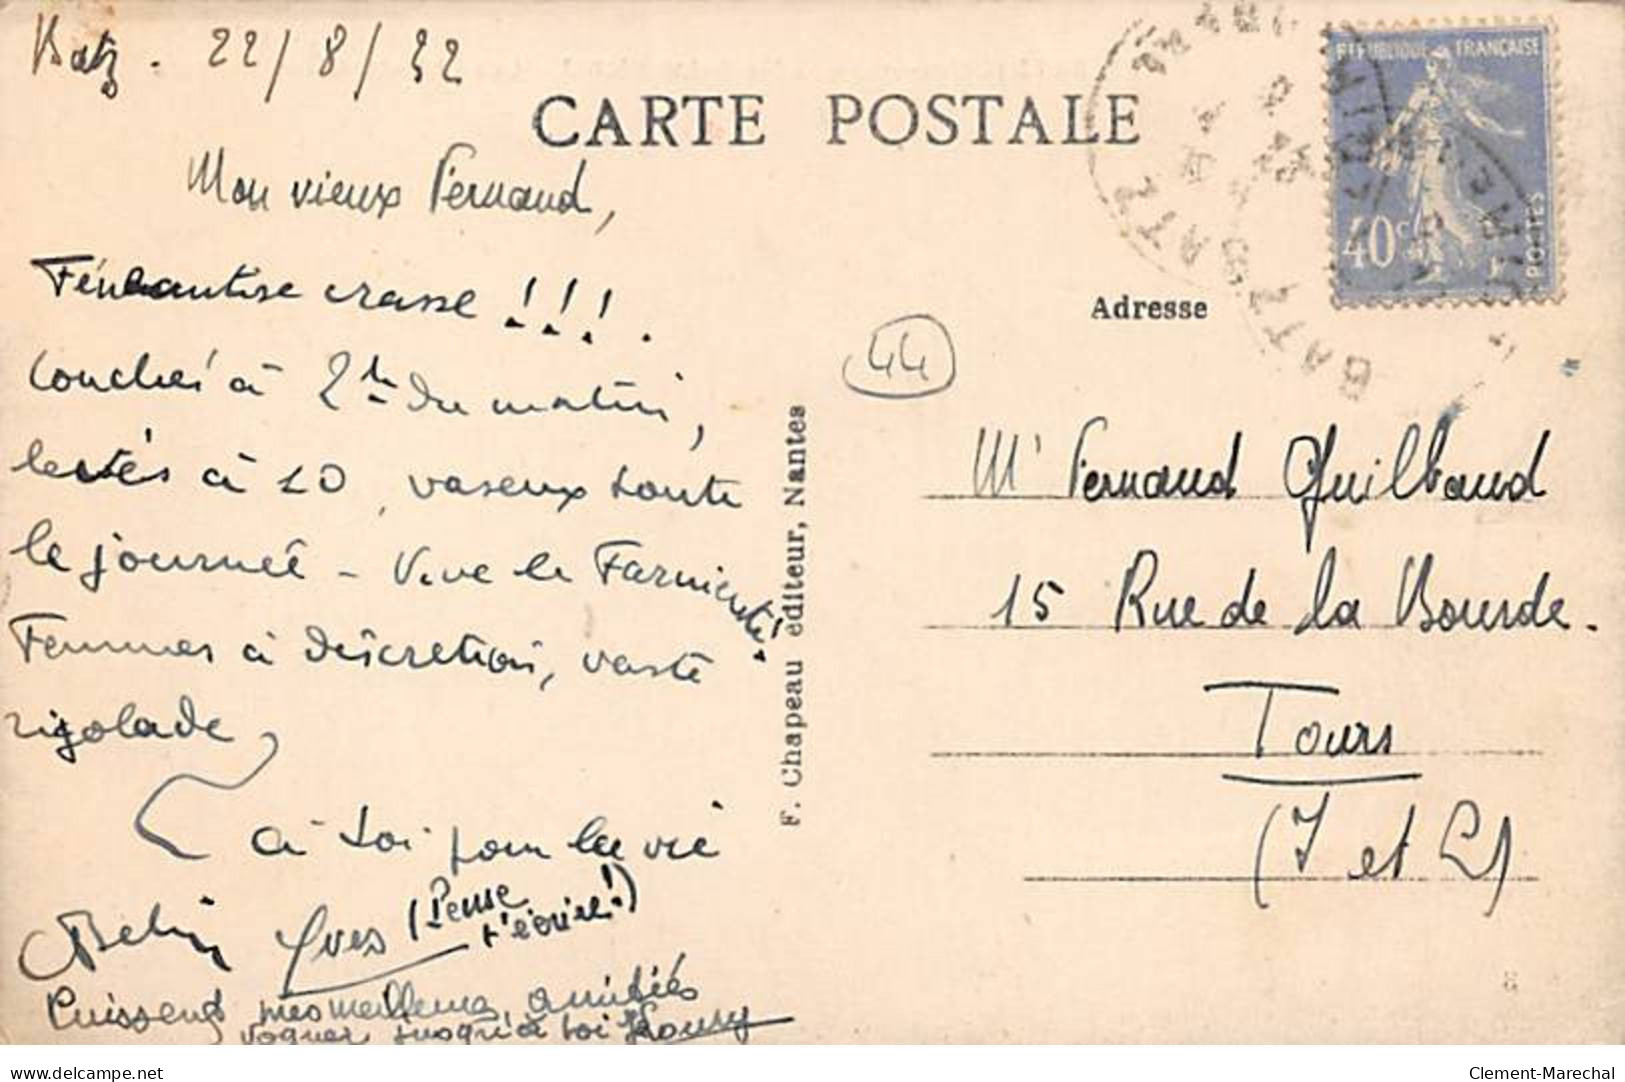 Batz. 22/8/32
CARTE POSTALE
Mon vieux Fernand,
Fénéantise crasse !!!.
couchés à 2h du matin,
levés à 10, vaseux toute
la journée - Vive le Farniente!
Femmes à discrétion, vaste
rigolade,
à toi pour la vie
Yves (Pense
t'écrire!)
Puissent mes meilleures amitiés
voguer jusqu'à toi
F. Chapeau éditeur, Nantes
REPUBLIQUE FRANÇAISE
40c
POSTES
BATZ
BATZ
Adresse
44
Mr Fernand Guilbaud
15 Rue de la Bourde.
Tours
(I et L)
delcampe.net
Clement-Marechal